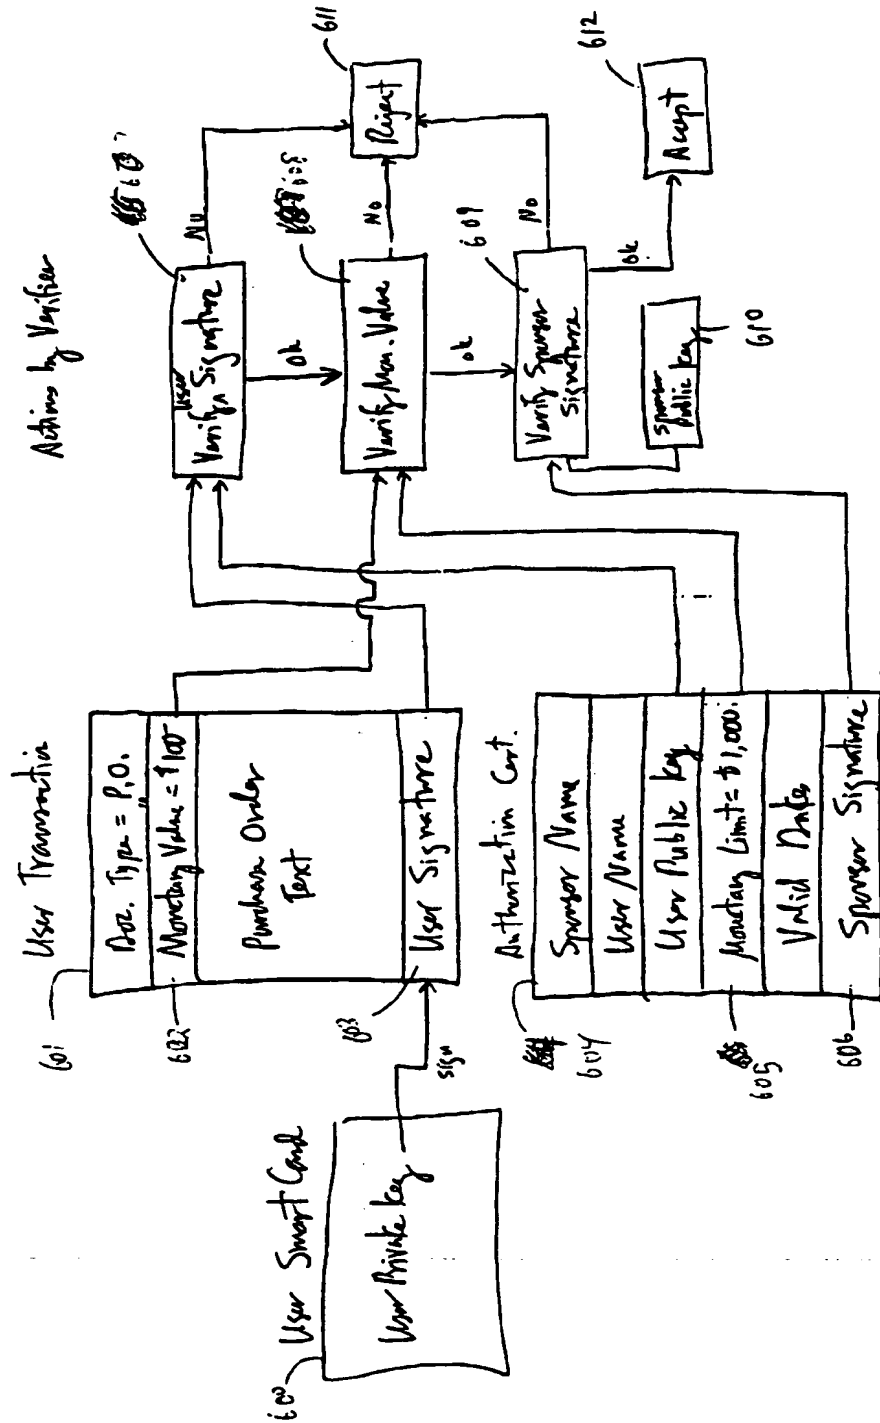 User Smart Card
600
User Private Key
sign
User Transaction
601
Doc. Type = P.O.
Monetary Value = $100
602
Purchase Order
Text
603
User Signature
Authorization Cert.
604
Sponsor Name
User Name
User Public Key
Monetary Limit = $1,000.
605
Valid Dates
606
Sponsor Signature
Actions by Verifier
User
Verify Signature
No
ok
Verify Mon. Value
No
ok
609
Verify Sponsor
Signature
No
ok
Sponsor
Public Key
610
Reject
611
Accept
612